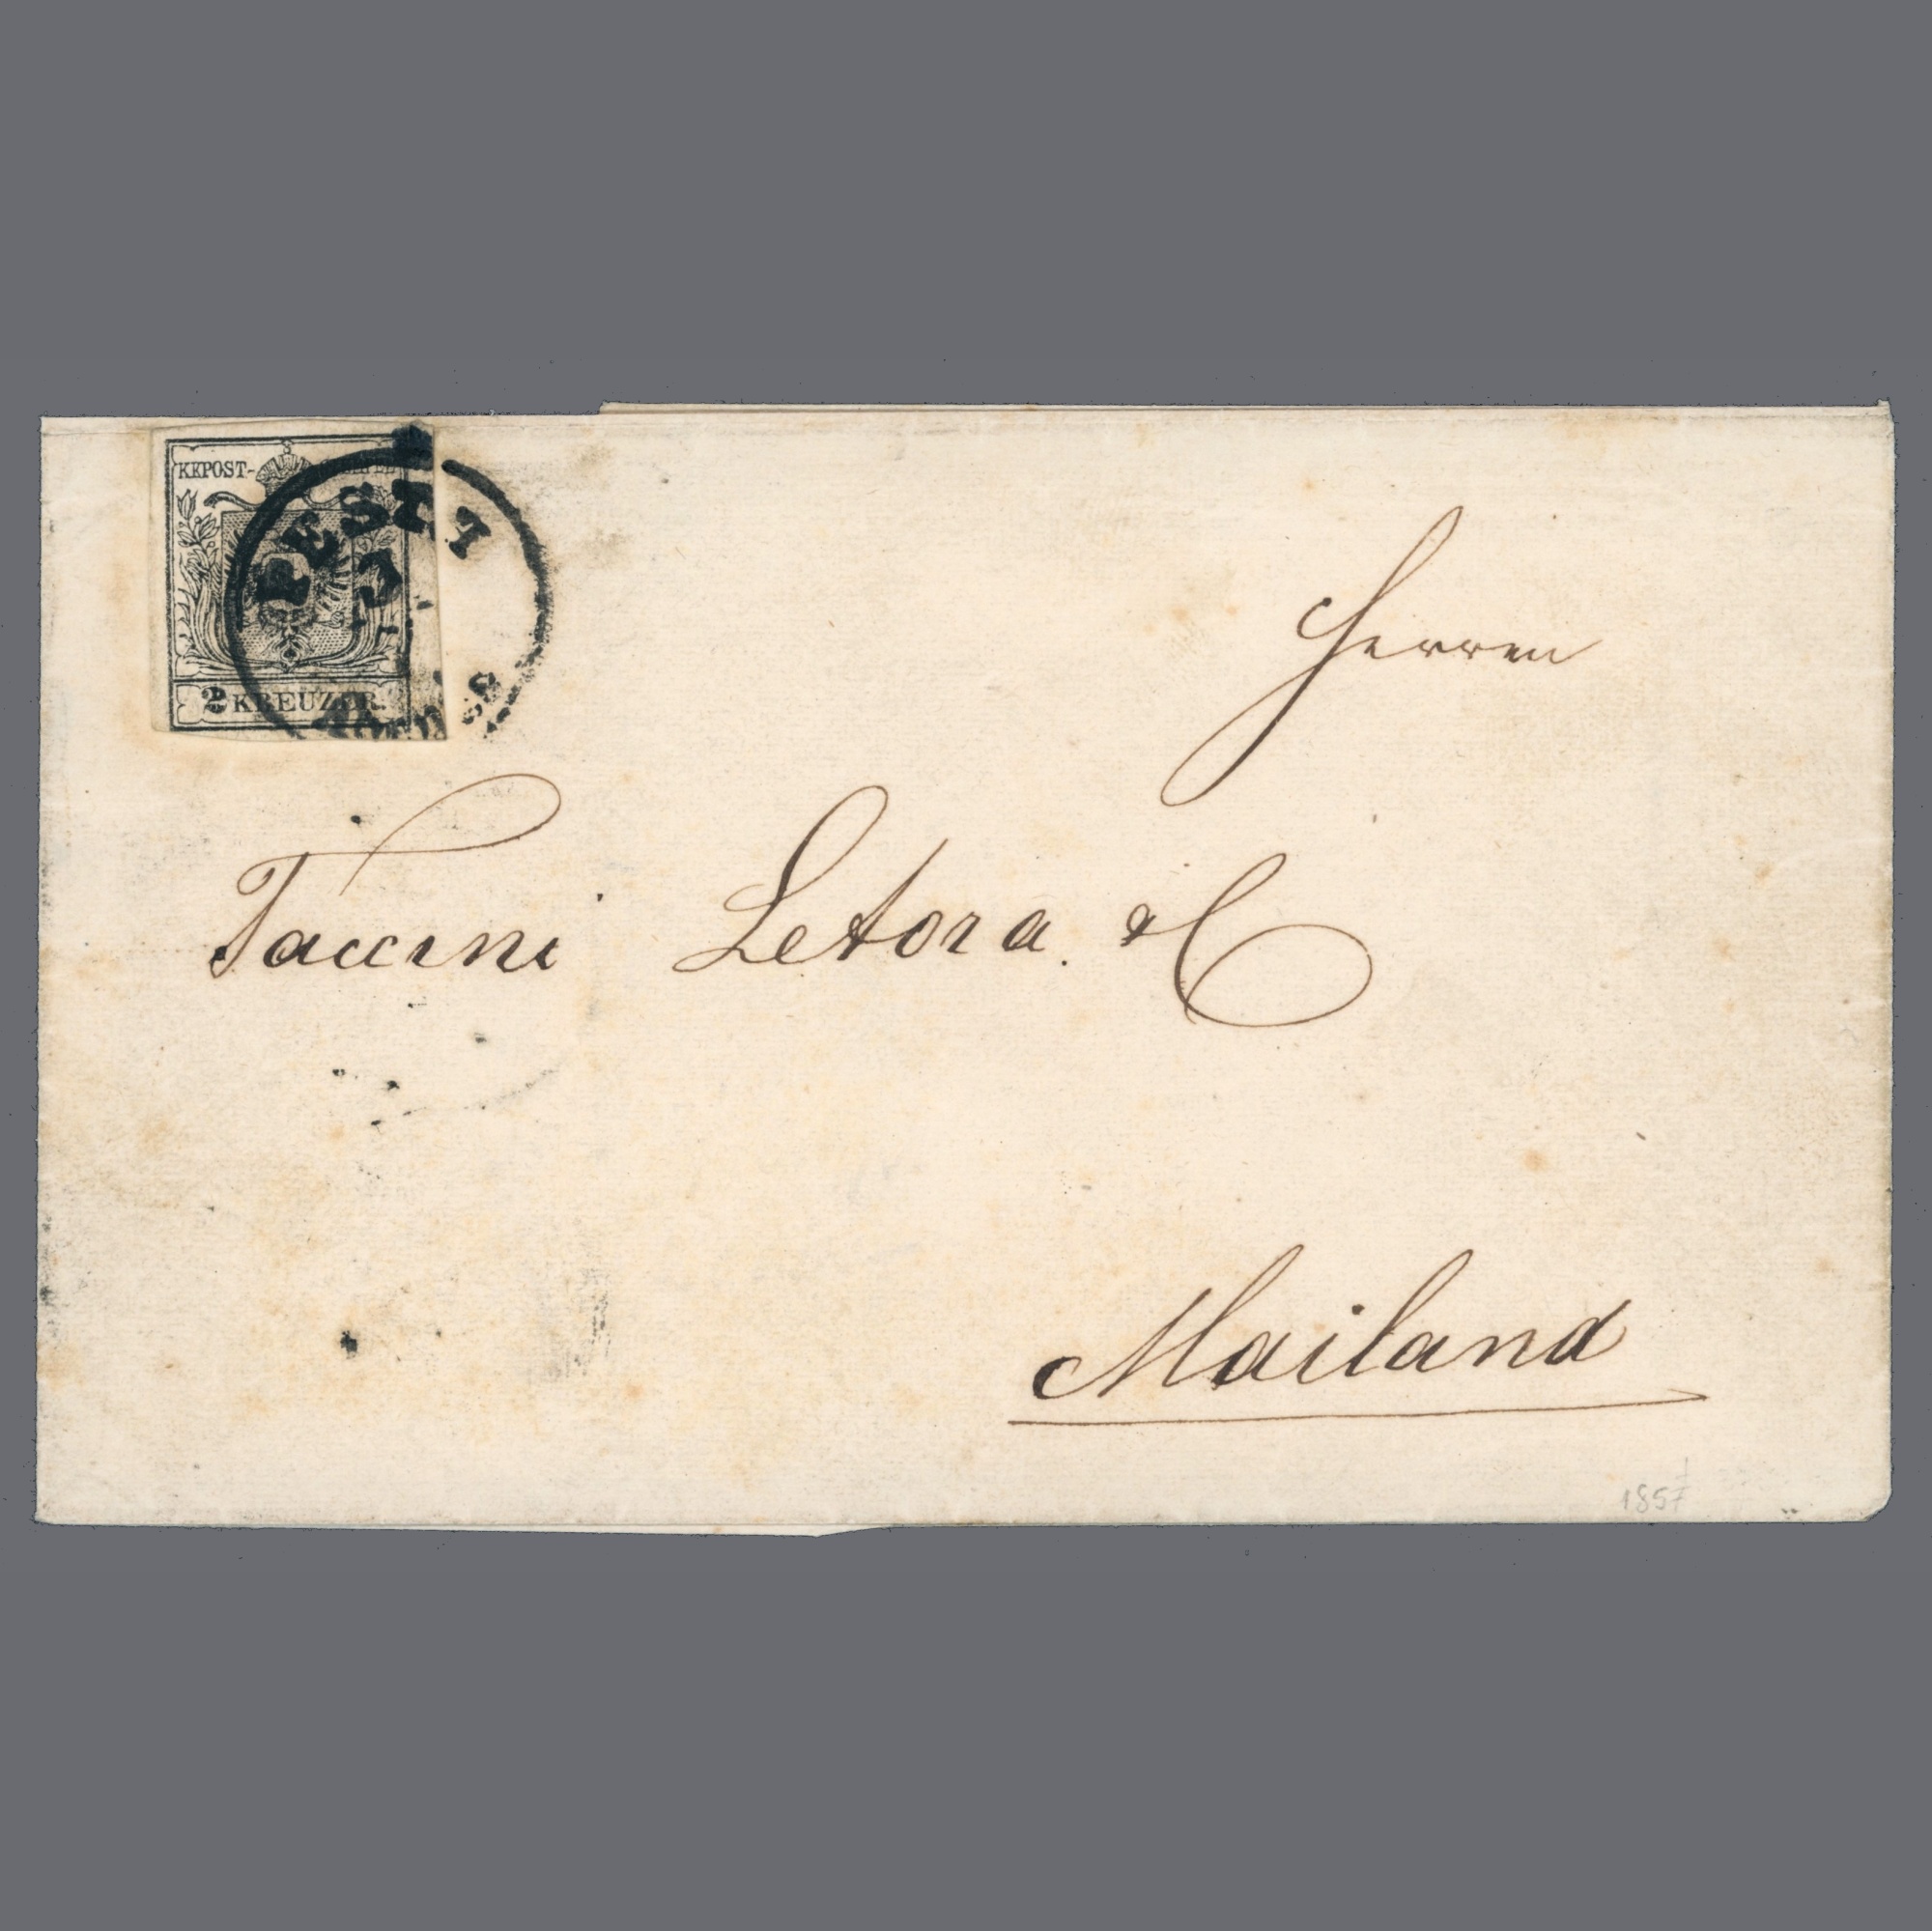 KKPOST-
PESTH
2 KREUZER.
Herren
Taccini Letora. & C
Mailand
1857